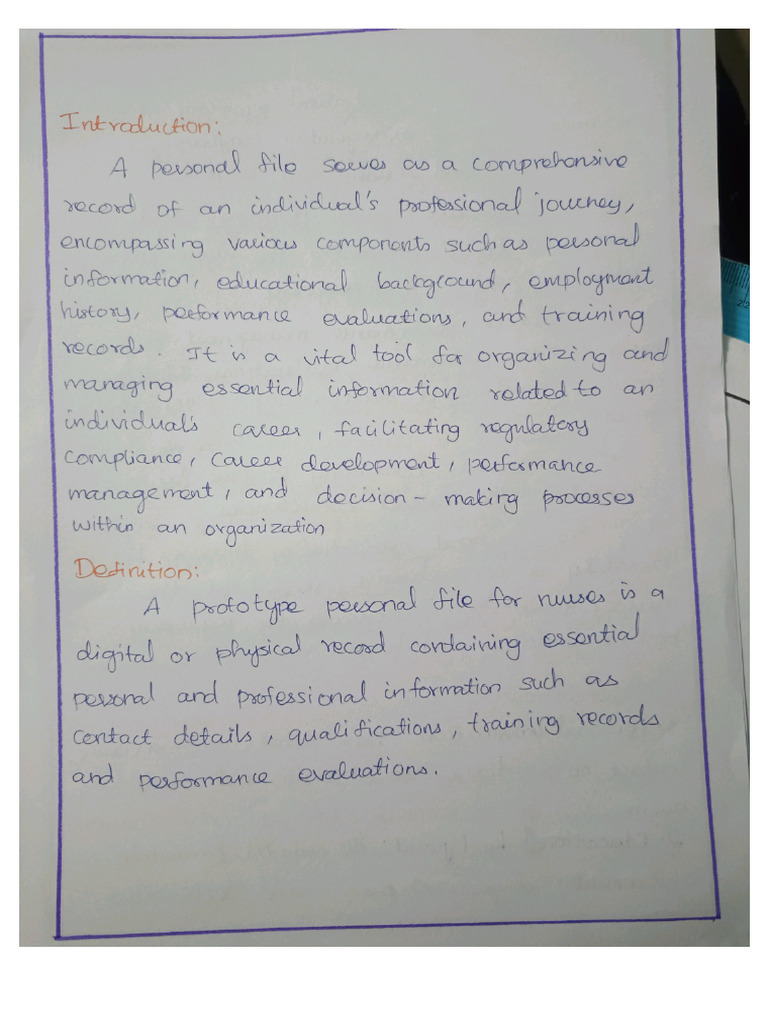 Introduction:
A personal file serves as a comprehensive
record of an individual's professional journey,
encompassing various components such as personal
information, educational background, employment
history, performance evaluations, and training
records. It is a vital tool for organizing and
managing essential information related to an
individual's career, facilitating regulatory
compliance, career development, performance
management, and decision - making processes
within an organization
Definition:
A prototype personal file for nurses is a
digital or physical record containing essential
personal and professional information such as
contact details, qualifications, training records
and performance evaluations.